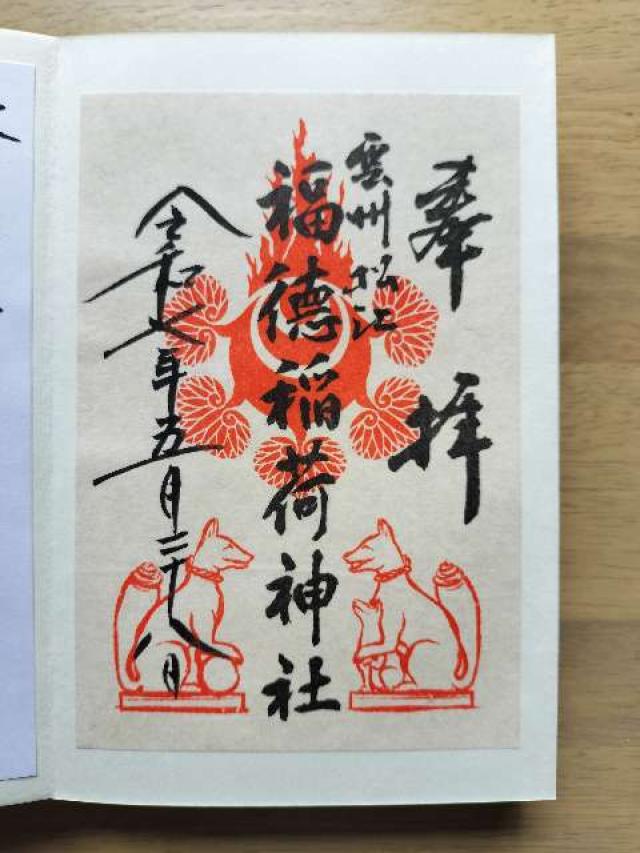 奉拝
雲州松江
福徳稲荷神社
令和七年五月二十八日